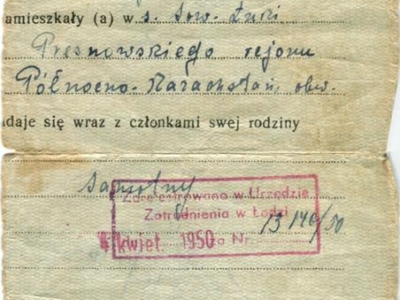 amieszkały (a) w s. Sow. Łuki
Presnowskiego rejonu
Północno-Kazachstań. obw.
daje się wraz z członkami swej rodziny
samotny
Zarejestrowano w Urzędzie
Zatrudnienia w Łodzi
kwiet. 1950 a Nr. 13140/50